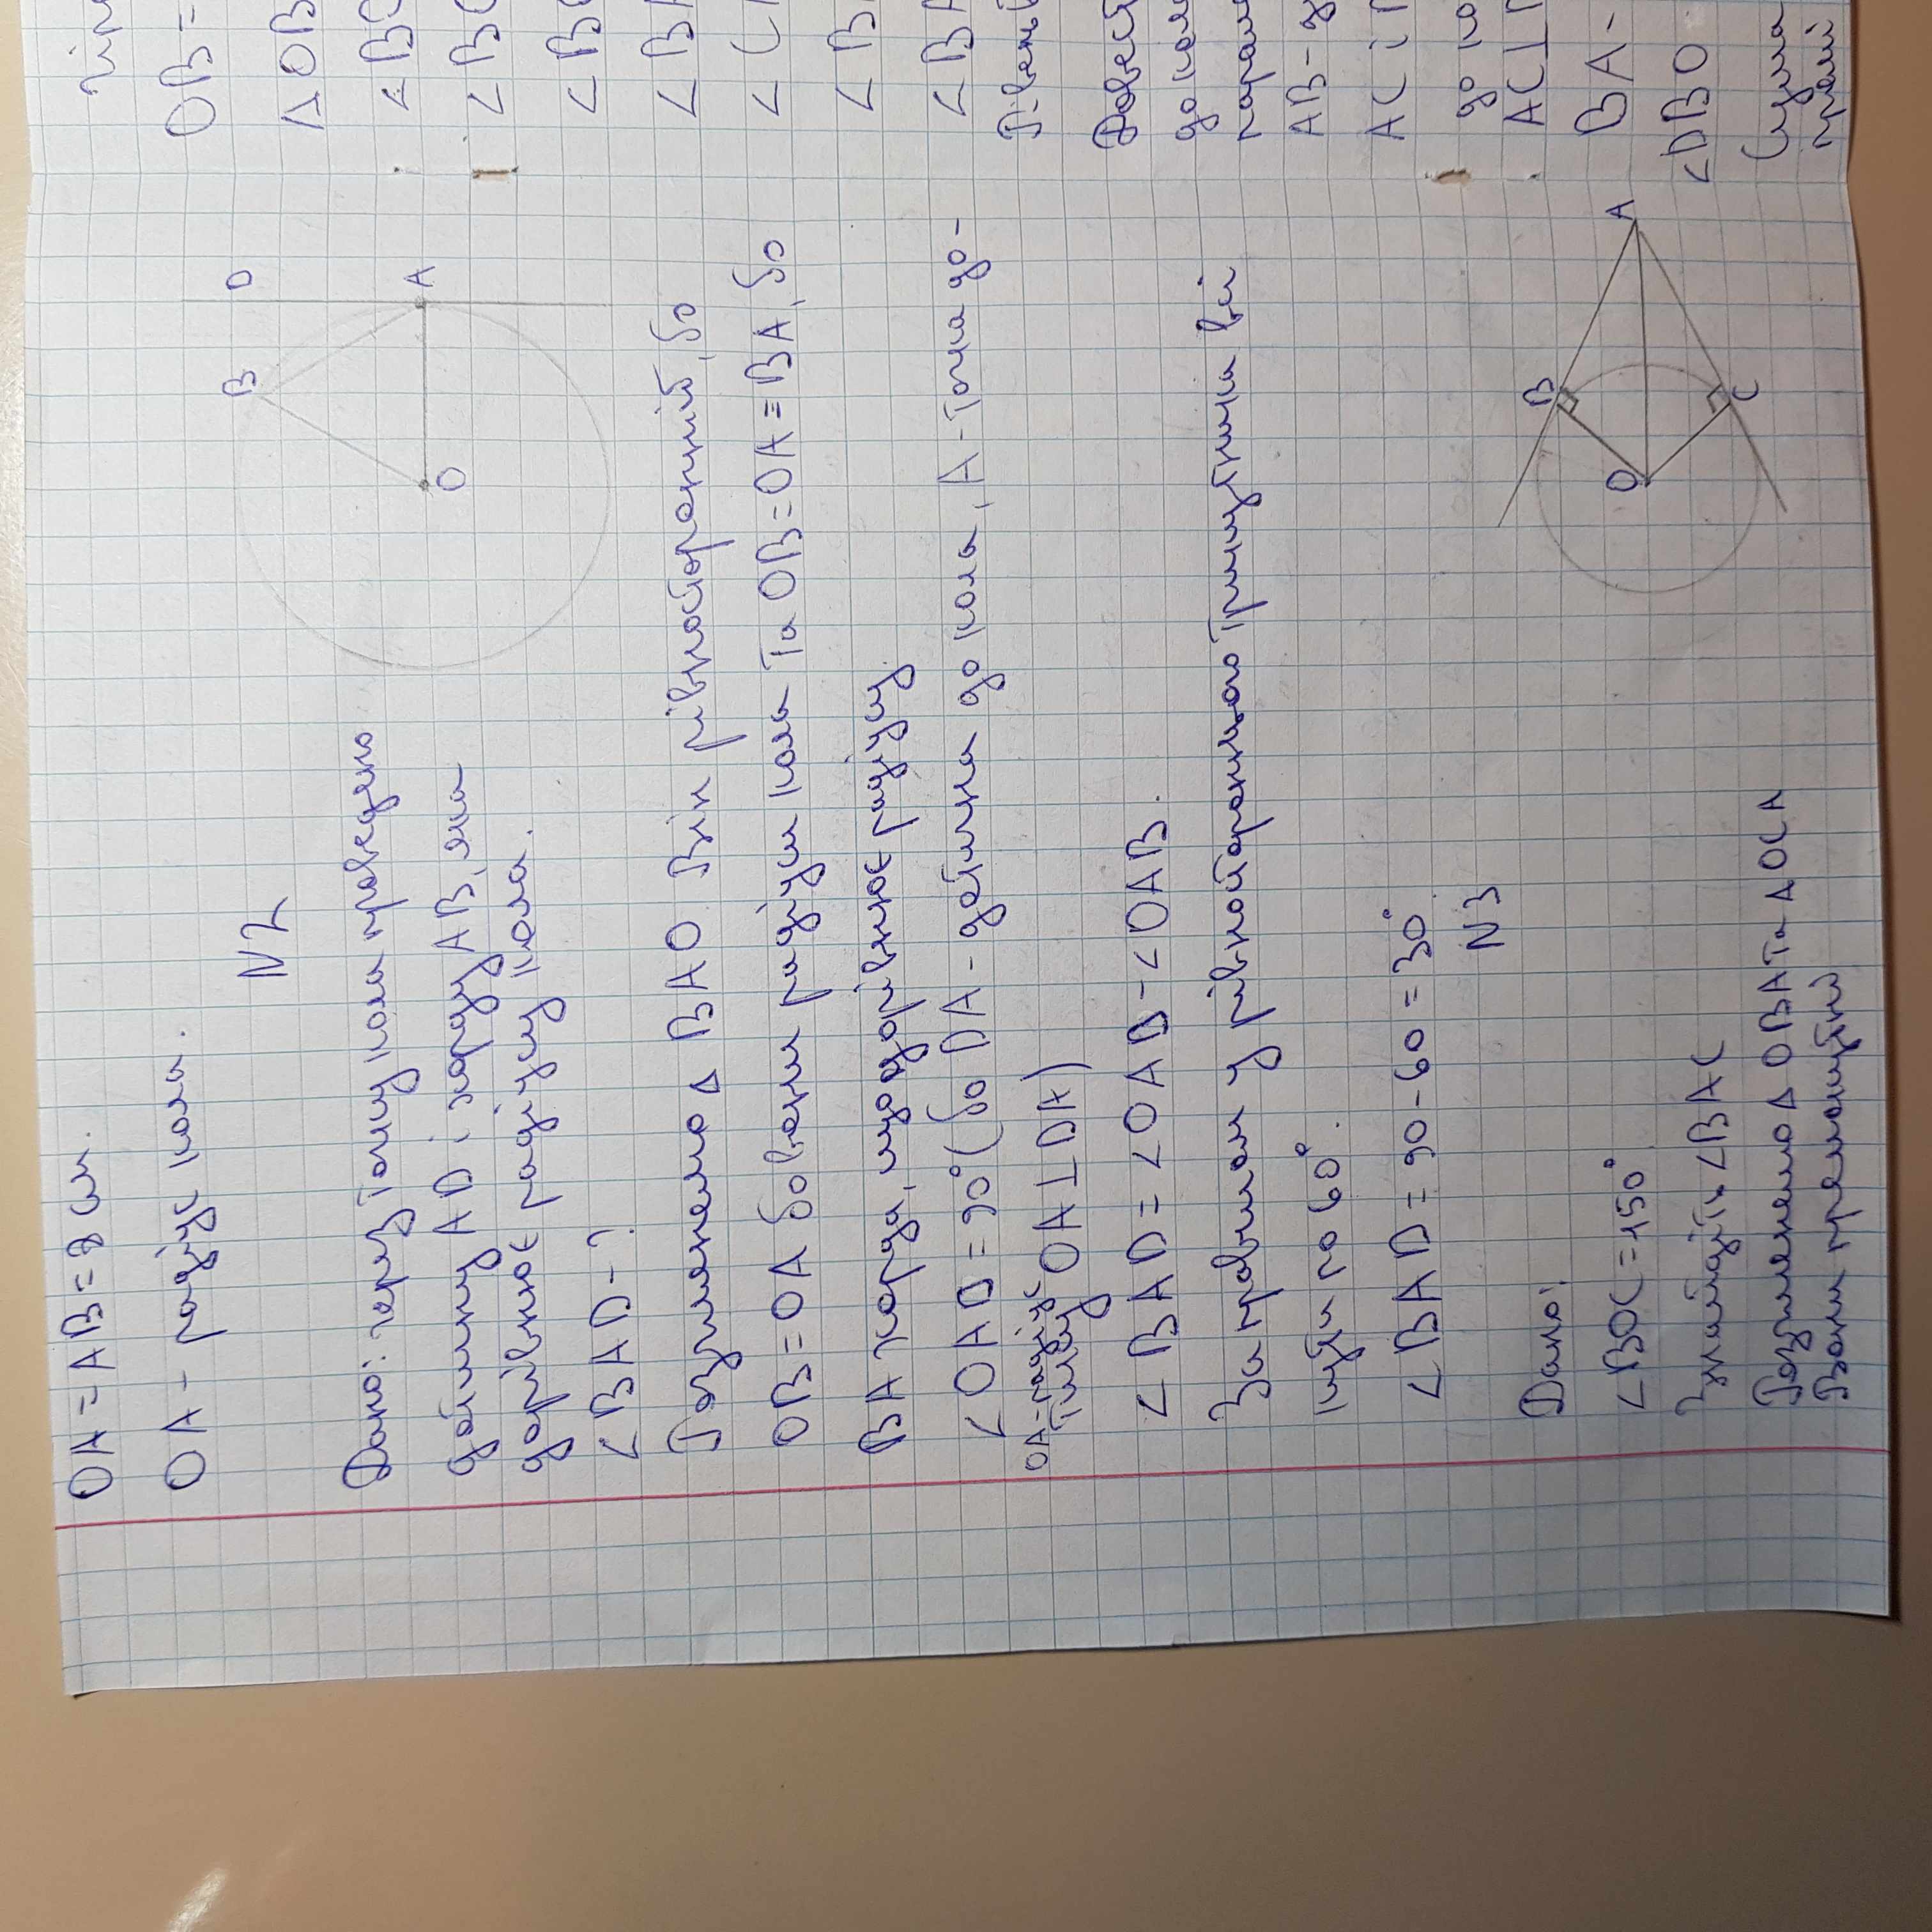 OA = AB = 8 см.
OA - радіус кола.
N2
Дано: через точку кола проведено
дотичну AD і хорду AB, яка
дорівнює радіусу кола.
<BAD-?
B
D
O
A
Розглянемо ∆ BAO. Він рівносторонній, бо
OB = OA бо вони радіуси кола та OB = OA = BA, бо
BA хорда, що дорівнює радіусу
<OAD = 90° (бо DA - дотична до кола, A - точка до-
OA-радіус
тику OA⊥DA)
<BAD = <OAD - <OAB.
За правилом у рівностороннього трикутника всі
кути по 60°.
<BAD = 90-60 = 30°
N3
Дано:
<BOC = 150°
Знайдіть <BAC
Розглянемо ∆ OBA та ∆ OCA
Вони прямокутні
B
O
A
C
OB =
∆OB
<BO
<BO
<BO
<BA
<BA
AB-д
AC і
до ко
AC⊥
BA-
<DBO
(сума